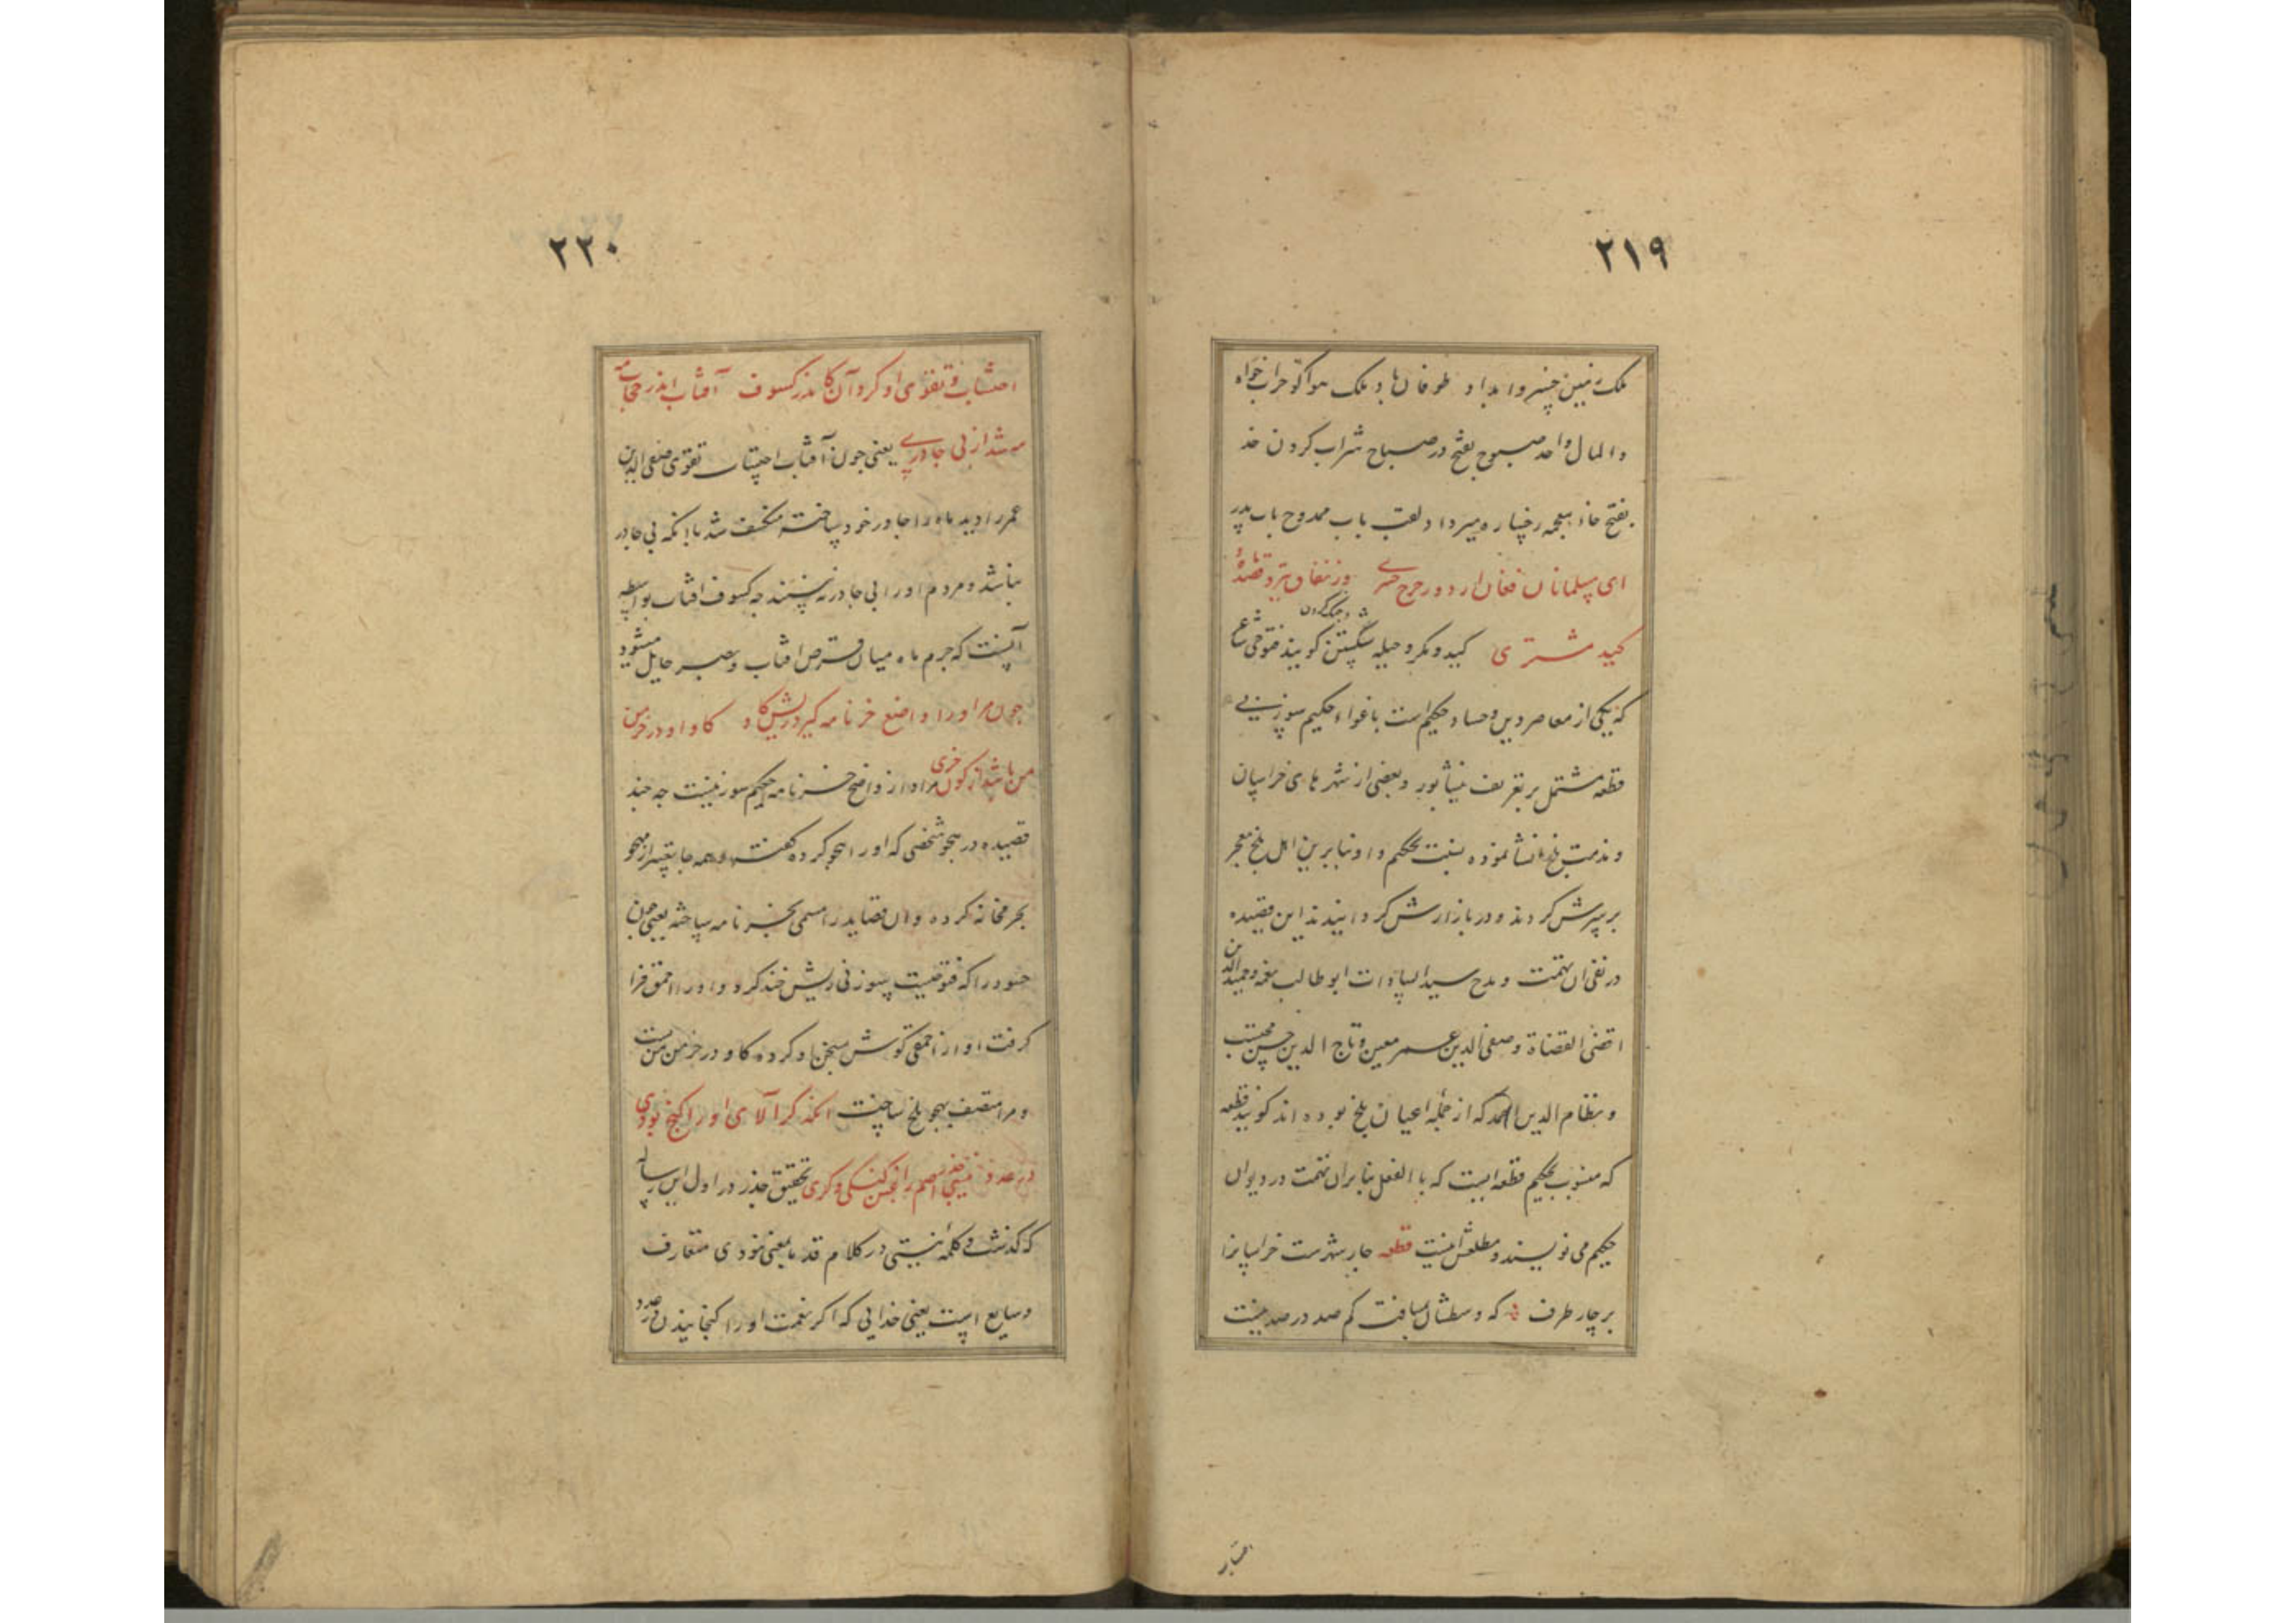 ۲۱۹
ملک زمین خسرو امداد طوفان باد ملک هوا کو خراب خواه
والمال واحد صبوح بفتح در صباح شراب کردن خد
بفتح خاء معجمه رخساره میرداد لقب باب ممدوح باب پدر
ای مسلمانان فغان از دور چرخ چنبری وز نفاق تیر و قصد ماه و
کید مشتری کید و مکر و حیله سگالیدن گویند فتوحی شاعر
که یکی از معاصرین و حساد حکیم است باغواء حکیم سوزنی
قطعه مشتمل بر تعریف نیشابور و بعضی از شهرهای خراسان
و مذمت بلخ انشا نموده نسبت بحکیم داد و بنابرین اهل بلخ معجر
بر سرش کردند و در بازارش گردانیدند این قصیده
در نفی آن تهمت و مدح سید السادات ابو طالب نعمه و حمید الدین
اقضی القضاة و صفی الدین عمر معین و تاج الدین حسن محتسب
و نظام الدین احمد که از جمله اعیان بلخ بوده اند گویند قطعه
که منسوب بحکیم قطعه ایست که بالفعل بنابر ان تهمت در دیوان
حکیم می نویسند و مطلعش اینست قطعه چار شهرست خراسانرا
بر چار طرف که وسطشان بمسافت کم صد در صد نیست
احتساب
۲۲۰
احتساب و تقوی او کرد آن کاندر کسوف آفتاب اندر حجاب مه
مه شد از بی چادری یعنی چون آفتاب احتساب تقوی صفی الدین
عمر را دید ماه را چادر خود ساخته منکسف شد تا آنکه بی چادر
نباشد و مردم او را بی چادر نه بینند چه کسوف افتاب بواسطه
آنست که جرم ماه میان قرص افتاب و بصر حایل میشود
چون مرا او را واضع خرنامه گیرد ریش گاو گاو او در خرمن
من باشد از کون خری مراد از واضع خرنامه حکیم سوزنیست چه چند
قصیده در هجو شخصی که او را هجو کرده گفته و همه جا تعبیر از مهجو
بخر مخانه کرده و ان قصاید را مسمی بخرنامه ساخته یعنی چون
حسود را که فتوحیست سوزنی ریش خند کرد و او را احمق فرا
گرفت او از احمقی گوش بسخن او کرده گاو در خرمن من بست
و مرا متصف بهجو بلخ ساخت آنکه گر آلای او را گنج بودی
در عدد نیستی جذر اصم را غبن گنگی و کری تحقیق جذر در اول این رساله
که گذشت و کلمه نیستی در کلام قدما بمعنی نبودی متعارف
و شایع است یعنی خدایی که اگر نعمت او را گنجانیدن در عدد